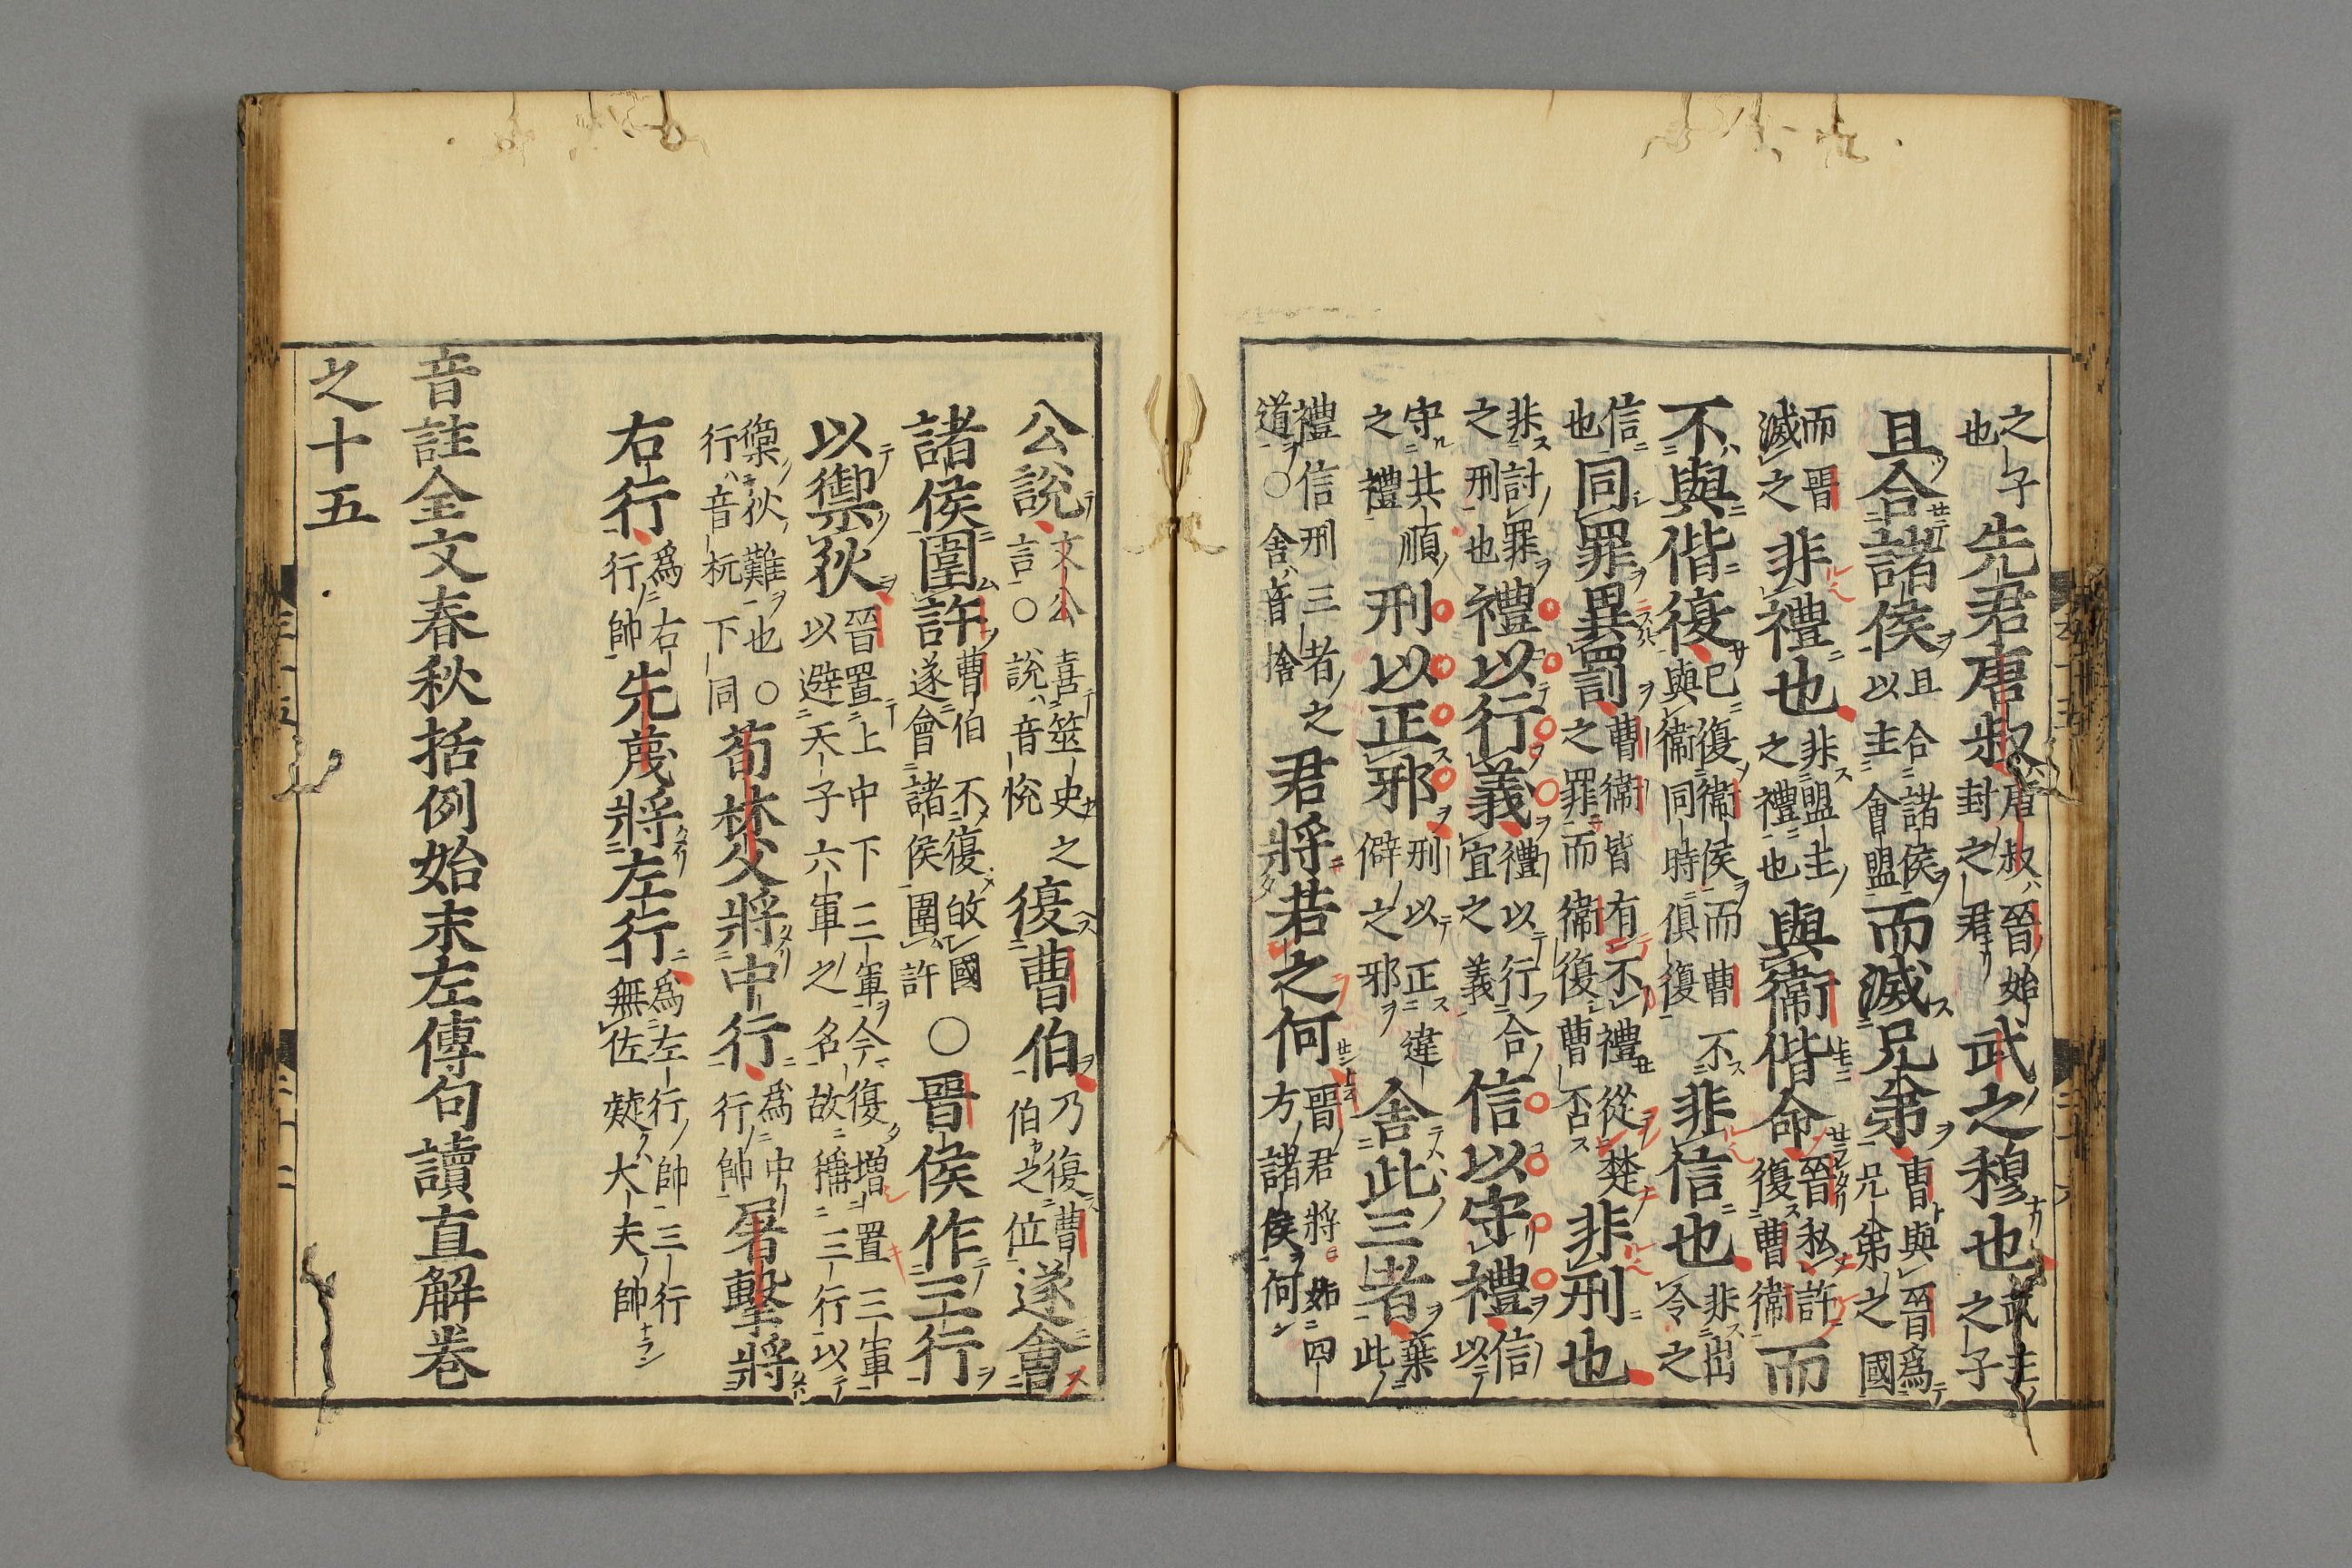 之子也先君唐叔唐叔晉始封之君武之穆也武王之子
且合諸侯且合諸侯以主會盟而滅兄弟曹與晉爲兄弟之國
而晉滅之非禮也非盟主之禮也與衞偕命晉私許復曹衞而
不與偕復已復衞侯而曹不與衞同時俱復非信也非出令之
信也同罪異罰曹衞皆有不禮從楚之罪而衞復曹否非刑也
非討罪之刑也禮以行義禮以行合宜之義信以守禮信以
守其順之禮刑以正邪刑以正違僻之邪舍此三者棄此
禮信刑三者之道○舍音捨君將若之何晉君將如四方諸侯何
公說文公喜筮史之言○說音悅復曹伯乃復曹伯之位遂會
諸侯圍許曹伯不復故國遂會諸侯圍許○晉侯作三行
以禦狄晉置上中下三軍今復增置三軍以避天子六軍之名故稱三行以
禦狄難也○行音杭下同荀林父將中行爲中行帥屠擊將
右行爲右行帥先蔑將左行爲左行帥三行無佐疑大夫帥
音註全文春秋括例始末左傳句讀直解卷
之十五